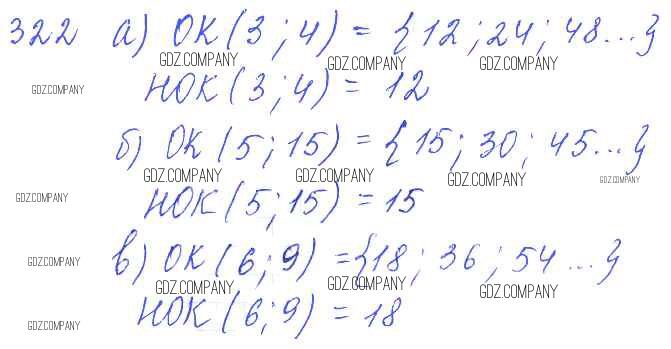 322 а) ОК(3;4) = {12;24;48...}
GDZ.COMPANY GDZ.COMPANY GDZ.COMPANY
GDZ.COMPANY НОК(3;4) = 12
б) ОК(5;15) = {15;30;45...}
GDZ.COMPANY GDZ.COMPANY GDZ.COMPANY GDZ.COMPANY
GDZ.COMPANY НОК(5;15) = 15
GDZ.COMPANY в) ОК(6;9) = {18;36;54...}
GDZ.COMPANY GDZ.COMPANY GDZ.COMPANY
GDZ.COMPANY НОК(6;9) = 18